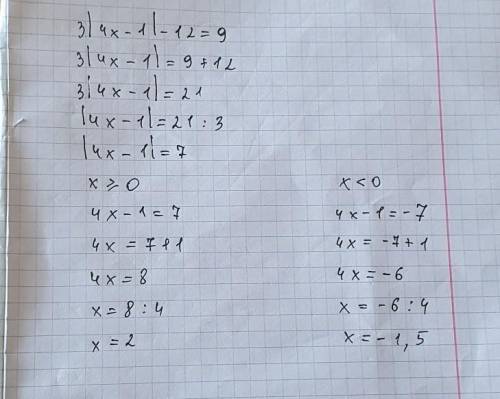 3|4x - 1| - 12 = 9
3|4x - 1| = 9 + 12
3|4x - 1| = 21
|4x - 1| = 21 : 3
|4x - 1| = 7
x ⩾ 0
4x - 1 = 7
4x = 7 + 1
4x = 8
x = 8 : 4
x = 2
x < 0
4x - 1 = - 7
4x = - 7 + 1
4x = - 6
x = - 6 : 4
x = - 1,5